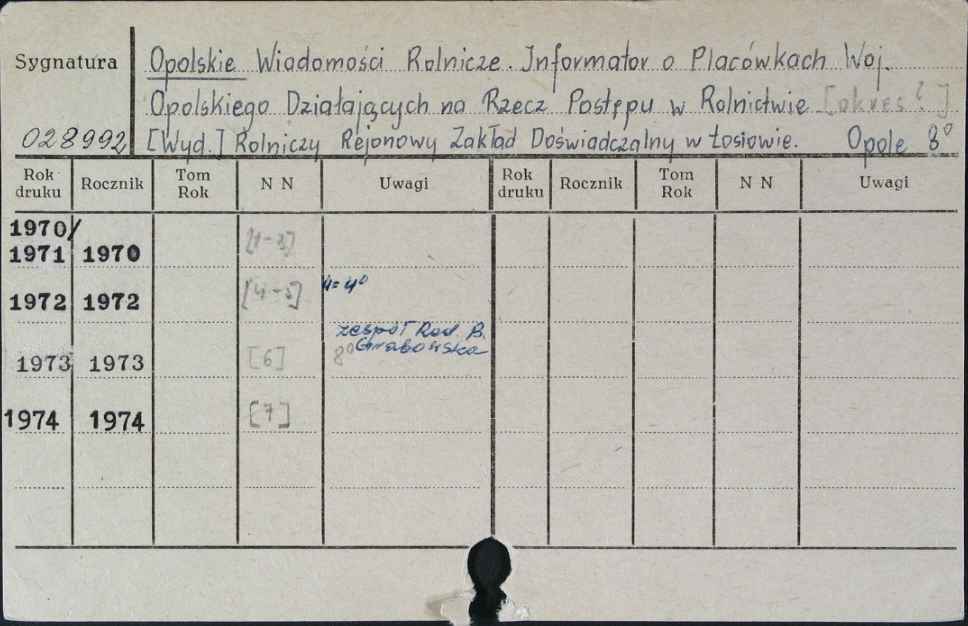 Sygnatura
Opolskie Wiadomości Rolnicze. Informator o Placówkach Woj.
Opolskiego Działających na Rzecz Postępu w Rolnictwie [okres?]
028992 [Wyd.] Rolniczy Rejonowy Zakład Doświadczalny w Łosiowie. Opole 8°
Rok druku Rocznik Tom Rok N N Uwagi Rok druku Rocznik Tom Rok N N Uwagi
1970/
1971 1970 [1-3]
1972 1972 [4-5] 4=4°
zespół Red. B.
Grabowska
1973 1973 [6] 8°
1974 1974 [7]